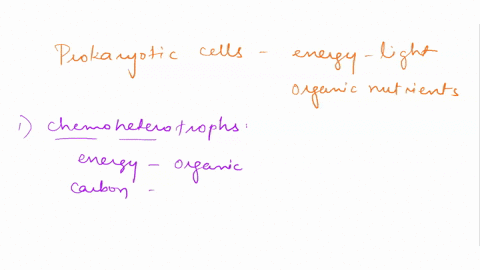 Prokaryotic cells - energy - light
organic nutrients
1) chemoheterotrophs:
energy - organic
carbon -